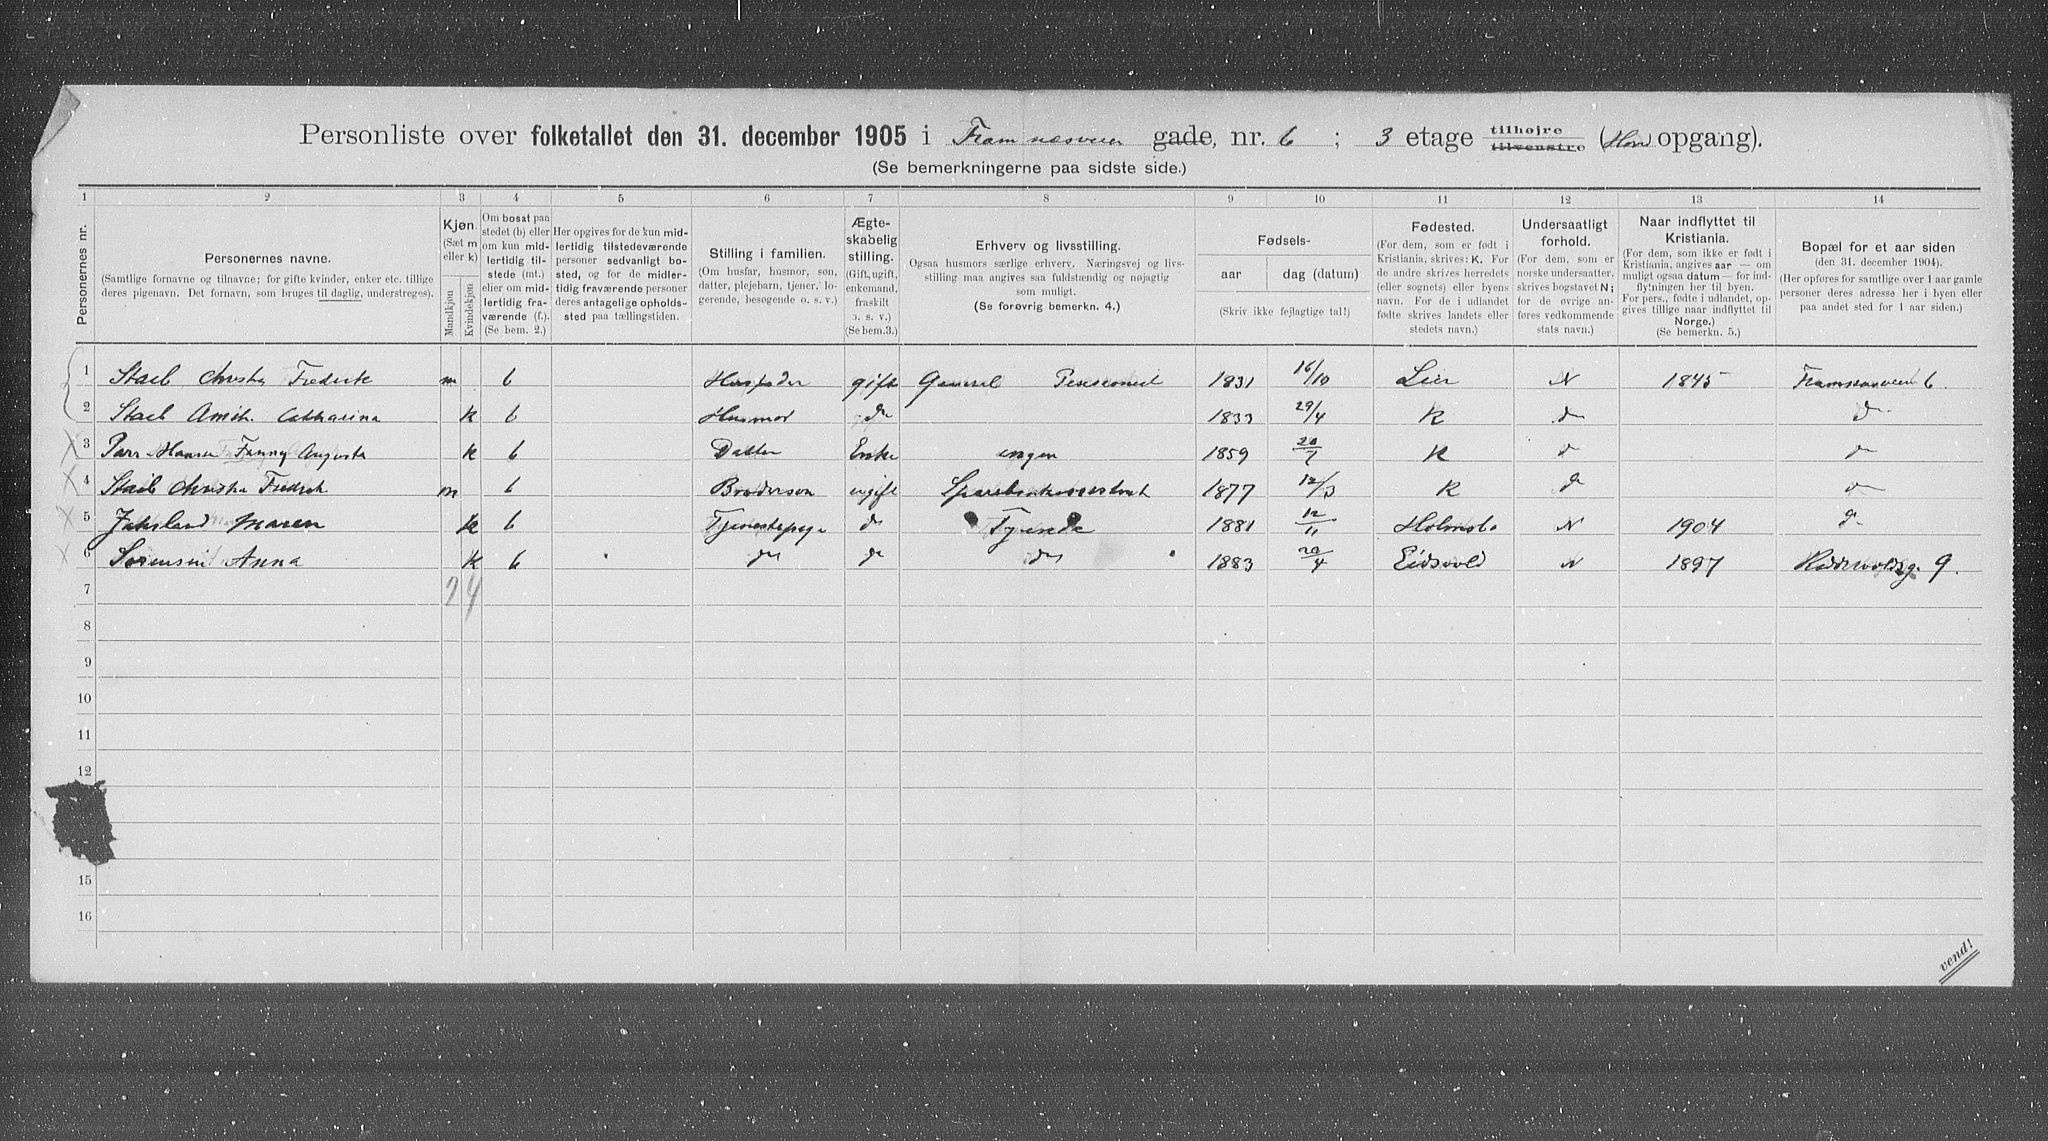 Personliste over folketallet den 31. december 1905 i Framnæsveien gade, nr. 6 ; 3 etage tilhøjre tilvenstre (Hov opgang).
(Se bemerkningerne paa sidste side.)
1 2 3 4 5 6 7 8 9 10 11 12 13 14
Personernes nr.
Personernes navne.
(Samtlige fornavne og tilnavne; for gifte kvinder, enker etc. tillige deres pigenavn. Det fornavn, som bruges til daglig, understreges).
Kjøn. (Sæt m eller k) Mandkjøn Kvindekjøn
Om bosat paa stedet (b) eller om kun midlertidig tilstede (mt.) eller om midlertidig fraværende (f.). (Se bem. 2.)
Her opgives for de kun midlertidig tilstedeværende personer sedvanligt bosted, og for de midlertidig fraværende personer deres antagelige opholdssted paa tællingstiden.
Stilling i familien.
(Om husfar, husmor, søn, datter, plejebarn, tjener, logerende, besøgende o. s. v.)
Ægteskabelig stilling.
(Gift, ugift, enkemand, fraskilt o. s. v.) (Se bem. 3.)
Erhverv og livsstilling.
Ogsaa husmors særlige erhverv. Næringsvej og livsstilling maa angives saa fuldstændig og nøjagtig som muligt.
(Se forøvrig bemerkn. 4.)
Fødsels-
aar dag (datum)
(Skriv ikke fejlagtige tal!)
Fødested.
(For dem, som er født i Kristiania, skrives: K. For de andre skrives herredets (eller sognets) eller byens navn. For de i udlandet fødte skrives landets eller stedets navn.)
Undersaatligt forhold.
(For dem, som er norske undersaatter, skrives bogstavet N; for de øvrige anføres vedkommende stats navn.)
Naar indflyttet til Kristiania.
(For dem, som ikke er født i Kristiania, angives aar — om muligt ogsaa datum — for indflytningen her til byen. For pers., fødte i udlandet, opgives tillige naar indflyttet til Norge.) (Se bemerkn. 5.)
Bopæl for et aar siden
(den 31. december 1904).
(Her opføres for samtlige over 1 aar gamle personer deres adresse her i byen eller paa andet sted for 1 aar siden.)
1 Staib Fredrik m b Husfader gift General 1831 16/10 Lier N 1845 Framnæsveien 6.
2 Staib Catharina k b Husmor do 1833 29/4 K do do
3 Hansen Fanny Augusta k b Datter Enke ingen 1859 20/7 K do do
4 Staib Fredrik m b Brodersøn ugift 1877 12/3 K do do
5 Maren k b Tjenestepige do Tjenende 1881 12/11 Holmsbo N 1904 do
6 Sørensen Anna k b do do do 1883 20/4 Eidsvold N 1897 Riddervoldsg. 9.
7 2 4
8
9
10
11
12
15
16
vend!